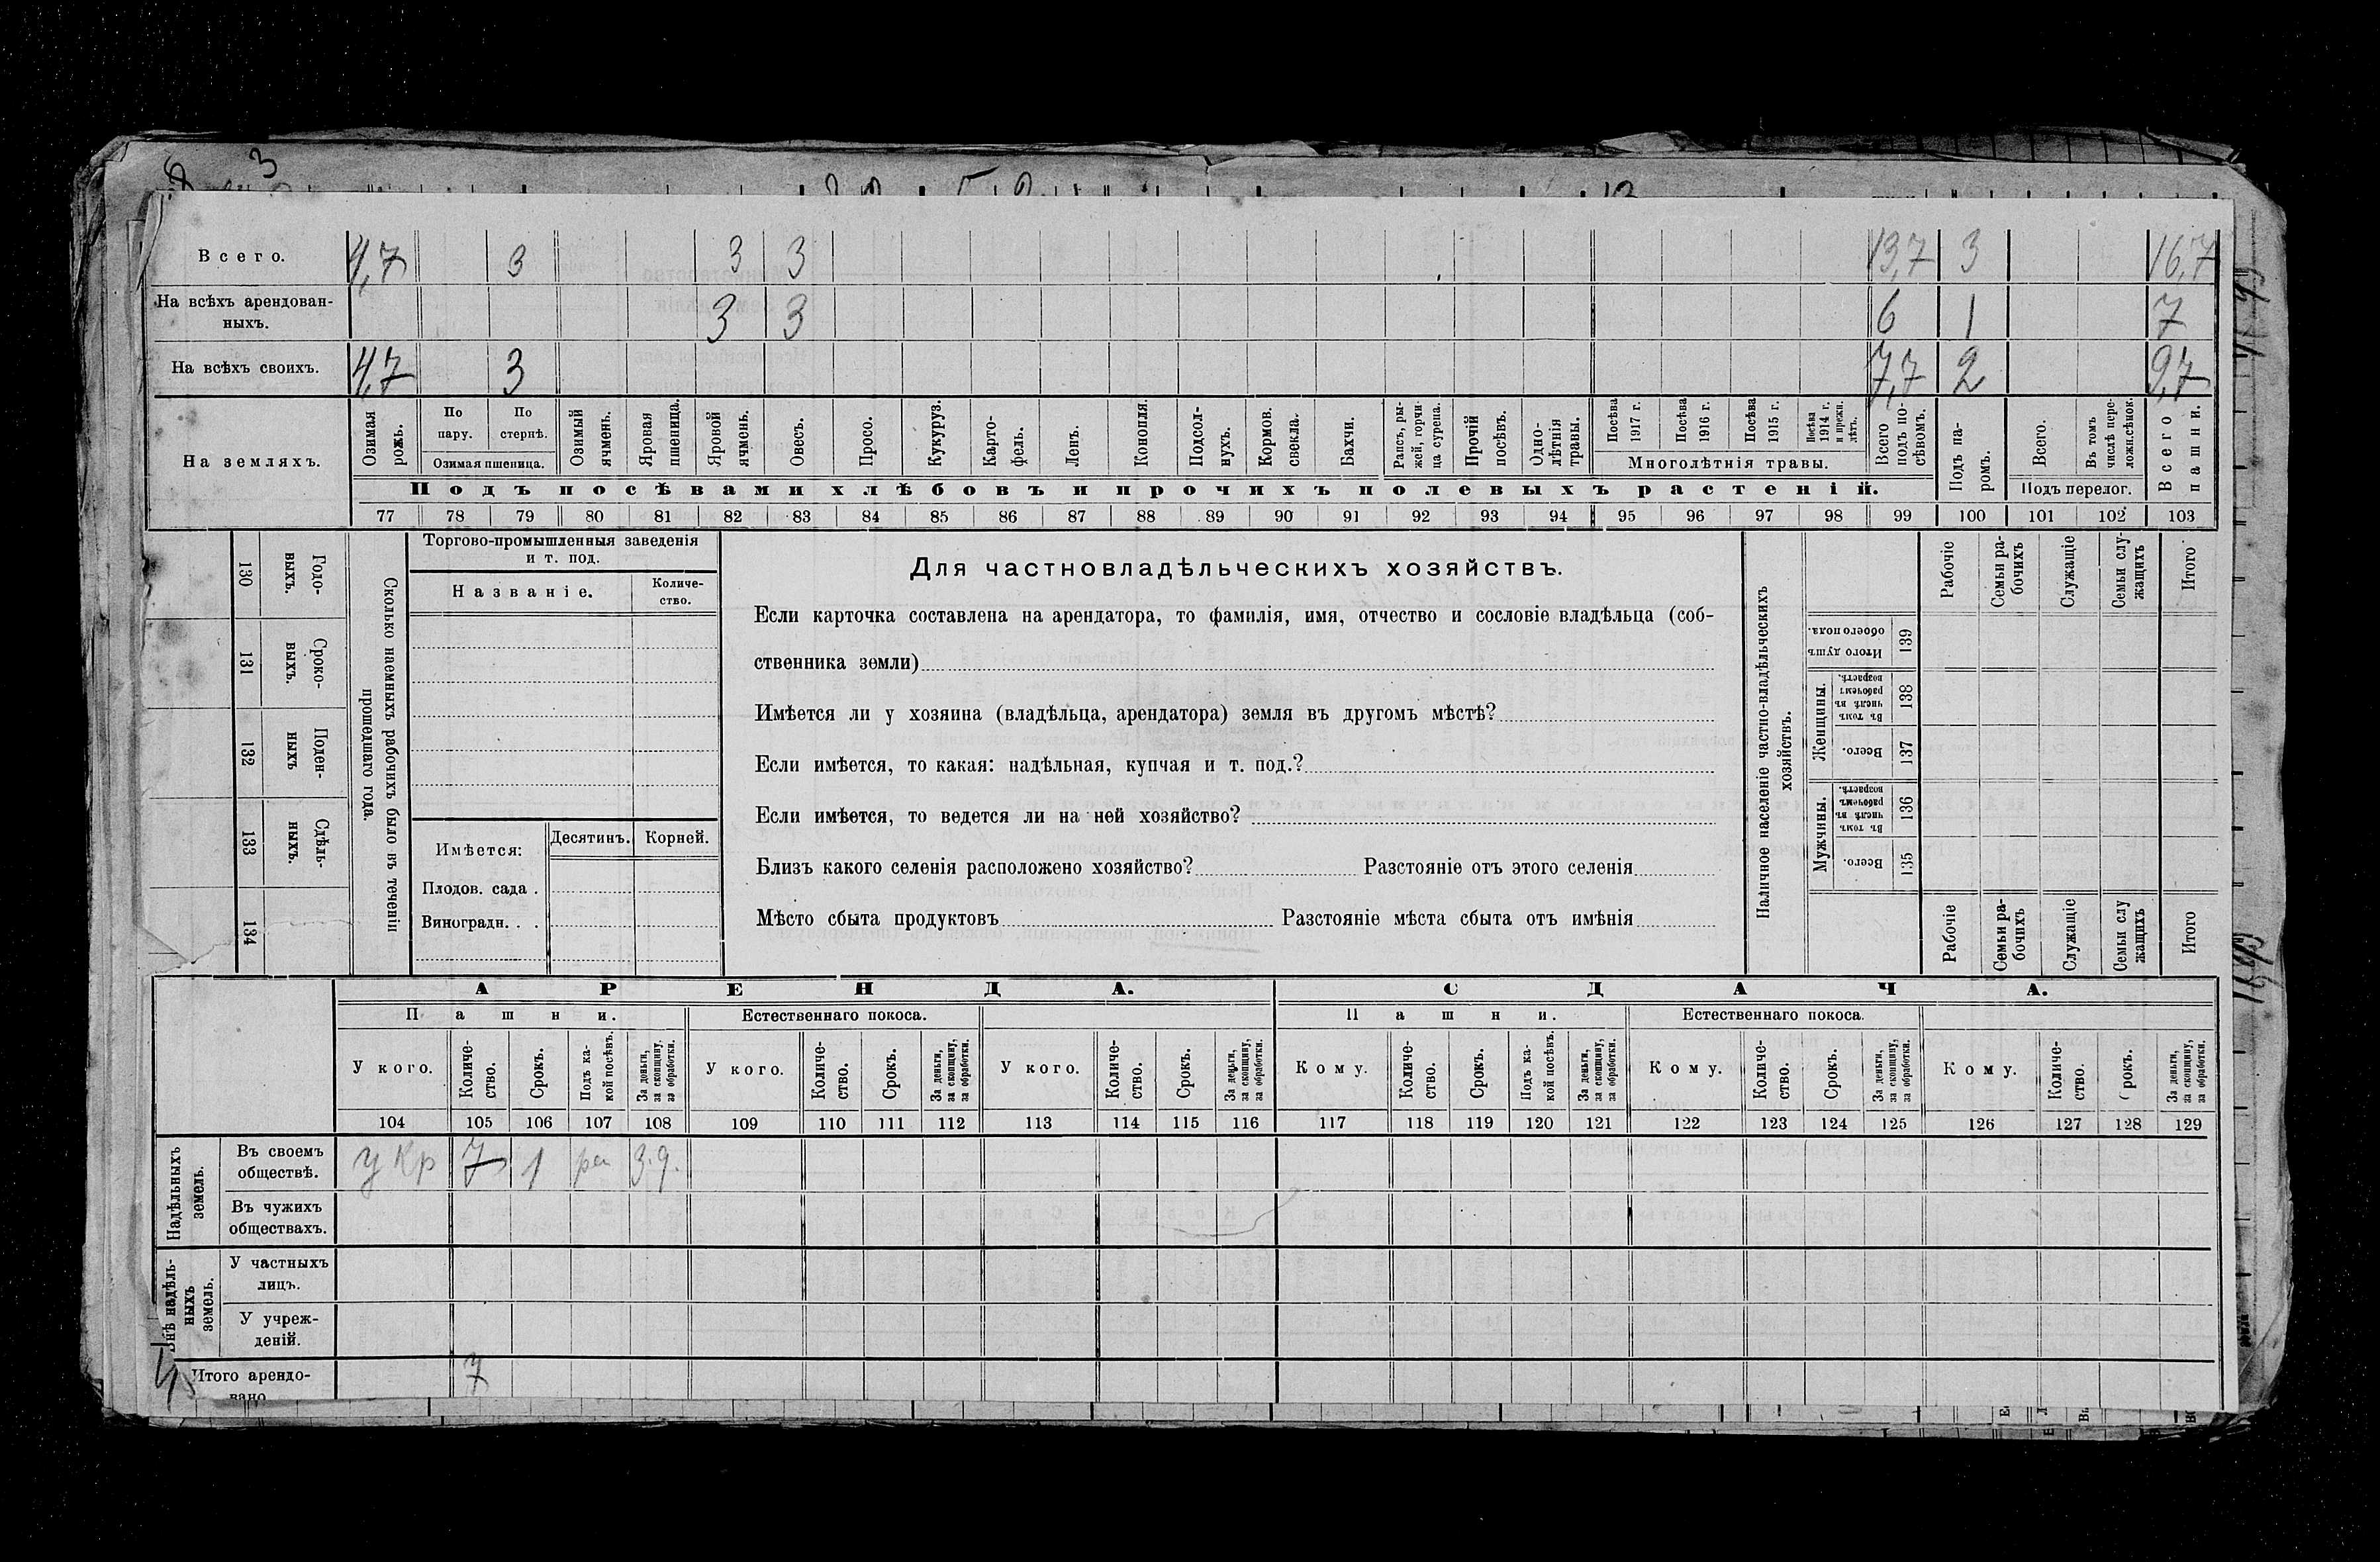 Всего. 4,7 3 3 3 13,7 3 16,7
На всѣхъ арендован-
ныхъ. 3 3 6 1 7
На всѣхъ своихъ. 4,7 3 7,7 2 9,7
На земляхъ.
Озимая рожь.
По пару.
По стернѣ.
Озимая пшеница.
Озимый ячмень.
Яровая пшеница.
Яровой ячмень.
Овесъ.
Просо.
Кукуруз.
Карто-
фель.
Ленъ.
Конопля.
Подсол-
нухъ.
Кормов. свекла.
Бахчи.
Рапсъ, ры-
жей, горчи-
ца сурепа.
Прочій посѣвъ.
Одно-
лѣтнія травы.
Посѣва 1917 г.
Посѣва 1916 г.
Посѣва 1915 г.
Посѣва 1914 г. и прежн. лѣтъ.
Многолѣтнія травы.
Всего подъ по-
сѣвомъ.
Подъ па-
ромъ.
Всего.
Въ томъ числѣ пере-
ложн.сѣнок.
Подъ перелог.
Всего пашни.
Подъ посѣвами хлѣбовъ и прочихъ полевыхъ растеній.
77 78 79 80 81 82 83 84 85 86 87 88 89 90 91 92 93 94 95 96 97 98 99 100 101 102 103
130 Годо-
выхъ.
131 Сроко-
выхъ.
132 Поден-
ныхъ
133 Сдѣль-
ныхъ.
134
Сколько наемныхъ рабочихъ было въ теченіи
прошедшаго года.
Торгово-промышленныя заведенія
и т. под.
Названіе.
Количе-
ство.
Имѣется:
Десятинъ.
Корней.
Плодов. сада .
Виноградн. . .
Для частновладѣльческихъ хозяйствъ.
Если карточка составлена на арендатора, то фамилія, имя, отчество и сословіе владѣльца (соб-
ственника земли)
Имѣется ли у хозяина (владѣльца, арендатора) земля въ другомъ мѣстѣ?
Если имѣется, то какая: надѣльная, купчая и т. под.?
Если имѣется, то ведется ли на ней хозяйство?
Близъ какого селенія расположено хозяйство? Разстояніе отъ этого селенія
Мѣсто сбыта продуктовъ Разстояніе мѣста сбыта отъ имѣнія
Наличное населеніе частно-владѣльческихъ
хозяйствъ.
Рабочіе
Семьи ра-
бочихъ
Служащіе
Семьи слу-
жащихъ
Итого
Итого душъ обоего пола. 139
Женщины.
Въ томъ числѣ въ рабочемъ возрастѣ. 138
Всего. 137
Мужчины.
Въ томъ числѣ въ рабочемъ возрастѣ. 136
Всего. 135
Рабочіе
Семьи ра-
бочихъ
Служащіе
Семьи слу
жащихъ
Итого
АРЕНДА. СДАЧА.
Пашни. Естественнаго покоса. Пашни. Естественнаго покоса.
У кого.
Количе-
ство.
Срокъ.
Подъ ка-
кой посѣвъ.
За деньги, за скопщину, за обработки.
У кого.
Количе-
ство.
Срокъ.
За деньги, за скопщину, за обработки.
У кого.
Количе-
ство.
Срокъ.
За деньги, за скопщину, за обработки.
Кому.
Количе-
ство.
Срокъ.
Подъ ка-
кой посѣвъ.
За деньги, за скопщину, за обработки.
Кому.
Количе-
ство.
Срокъ.
За деньги, за скопщину, за обработки.
Кому.
Количе-
ство.
рокъ.
За деньги, за скопщину, за обработки.
104 105 106 107 108 109 110 111 112 113 114 115 116 117 118 119 120 121 122 123 124 125 126 127 128 129
Надѣльныхъ
земель.
Въ своемъ
обществѣ. у Кр 7 1 3.д.
Въ чужихъ
обществахъ.
Внѣ надѣль-
ныхъ
земель.
У частныхъ
лицъ.
У учреж-
деній.
Итого арендо-
вано 7